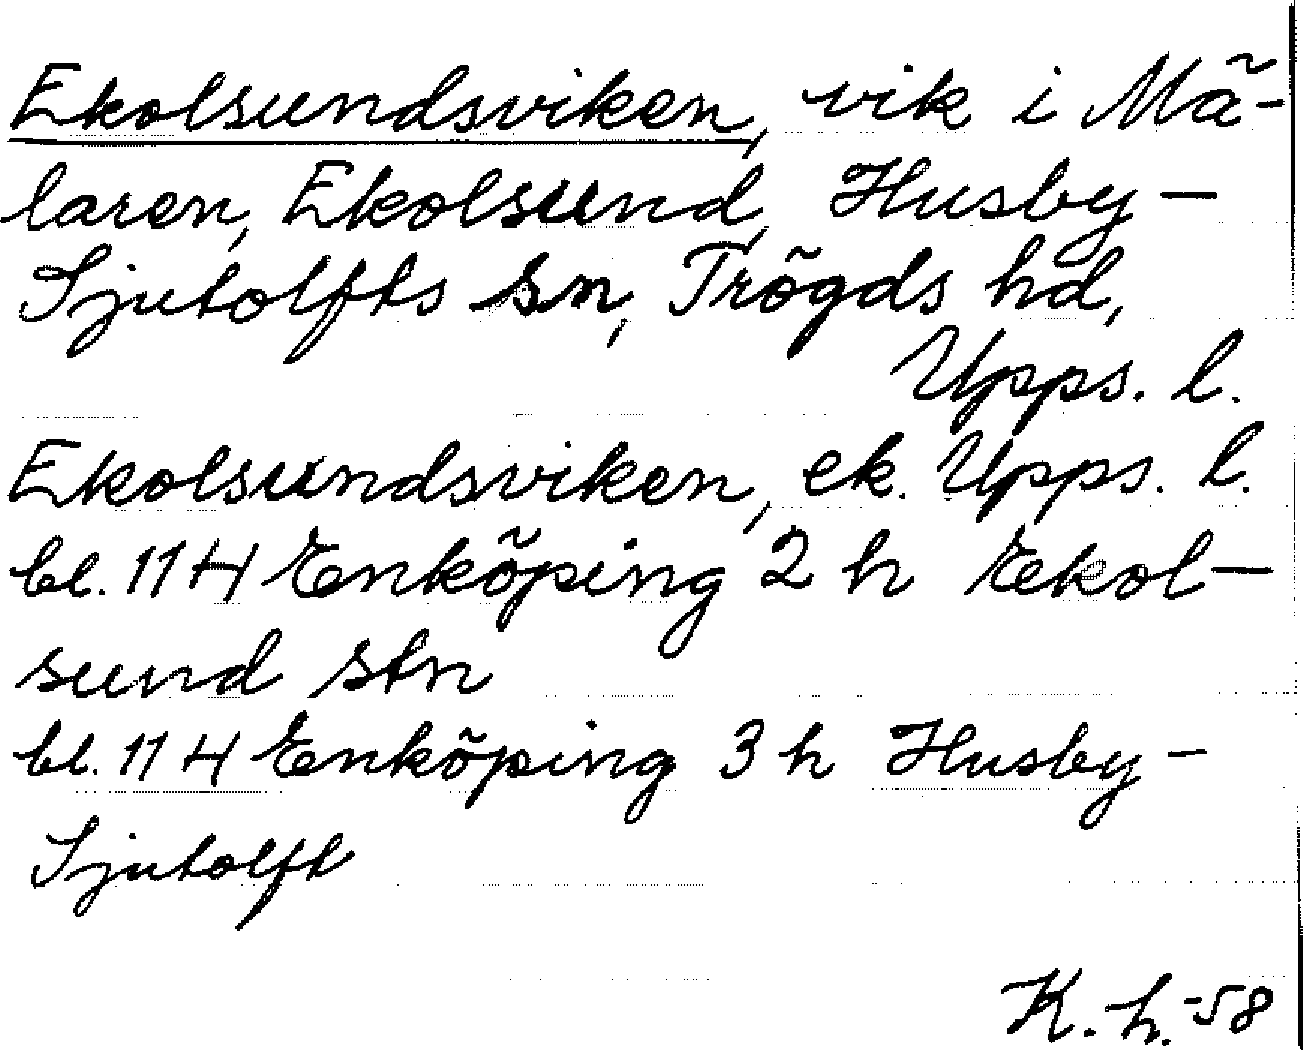 Ekolsundsviken, vik i Mä-
laren, Ekolsund, Husby-
Sjutolfts sn, Trögds hd,
Upps. l.
Ekolsundsviken, ek. Upps. l.
bl. 114 Enköping 2 h Ekol-
sund stn
bl. 114 Enköping 3 h Husby-
Sjutolft
K. h. -58